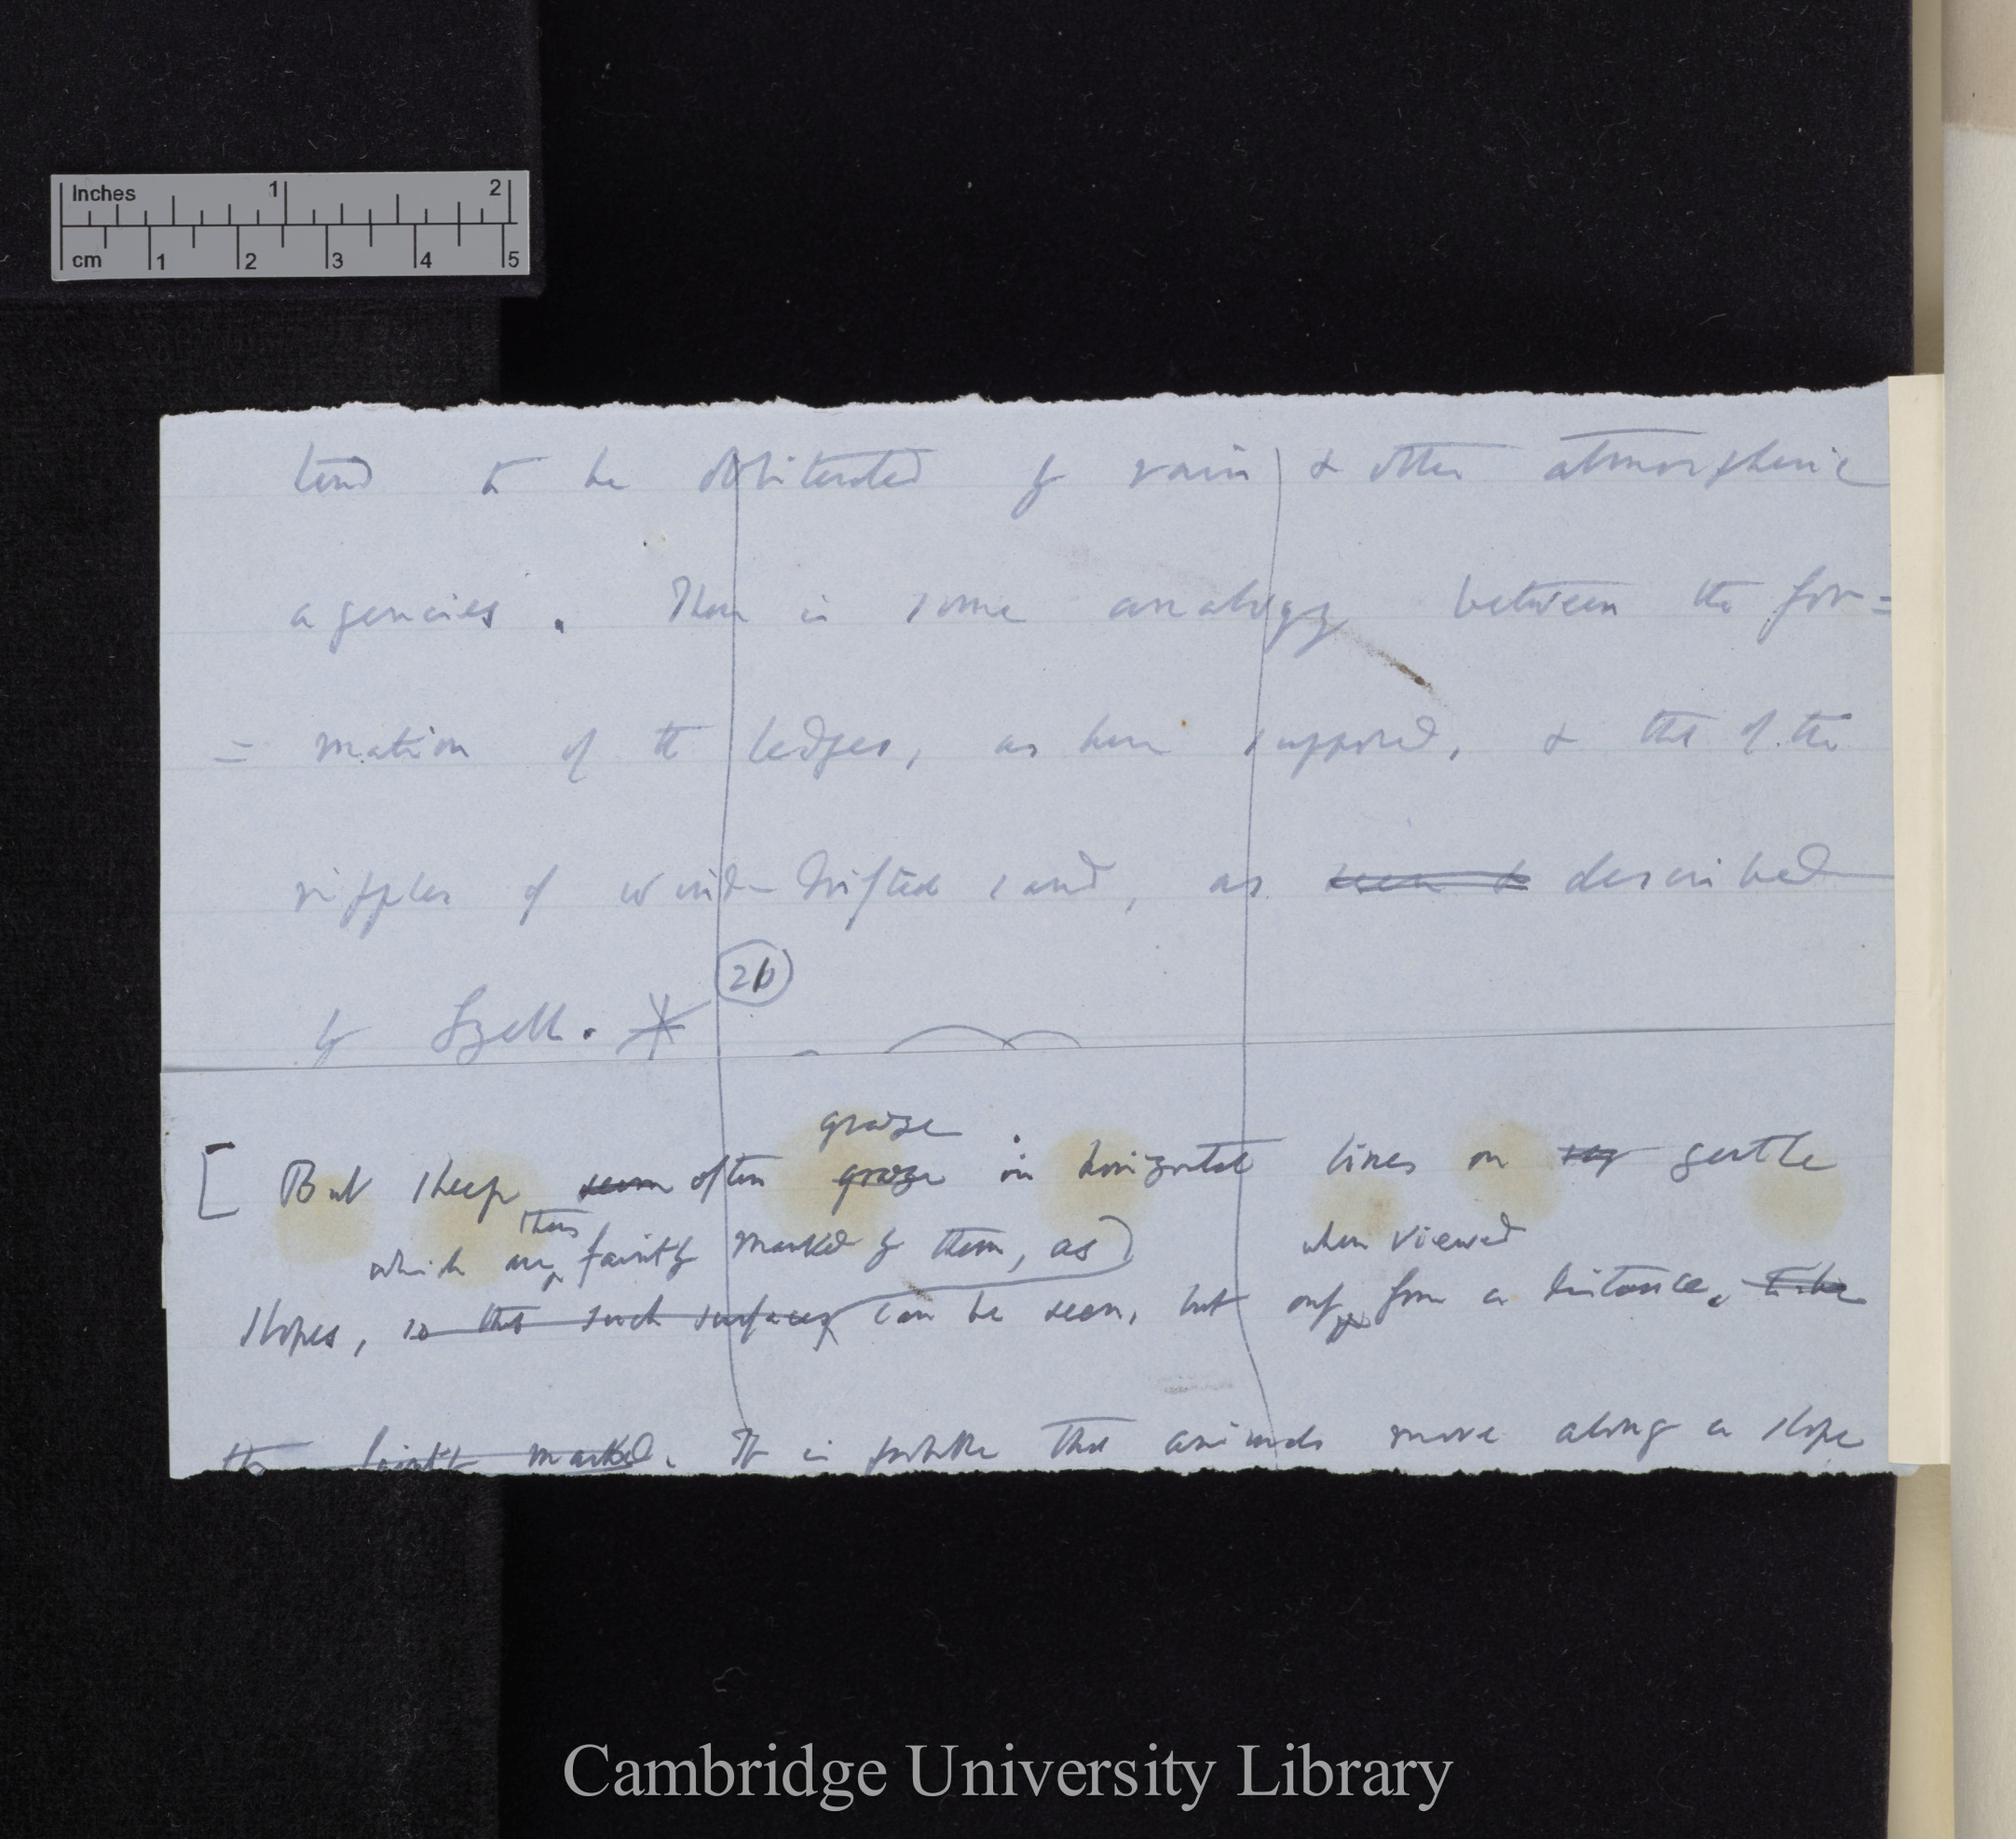 Inches 1 2
cm 1 2 3 4 5
tend to be obliterated by rain & other atmospheric
agencies. There is some analogy between the for=
=mation of the ledges, as here supposed, & that of the
ripples of wind-drifted sand, as seen to described
by Lyell. *
graze
[ But sheep seem often graze in horizontal lines on gentle
thus
which are faintly marked by them, as when viewed
slopes, so that such surfaces can be seen, but only from a distance. to be
the faintly marked. It is probable that animals move along a slope
Cambridge University Library